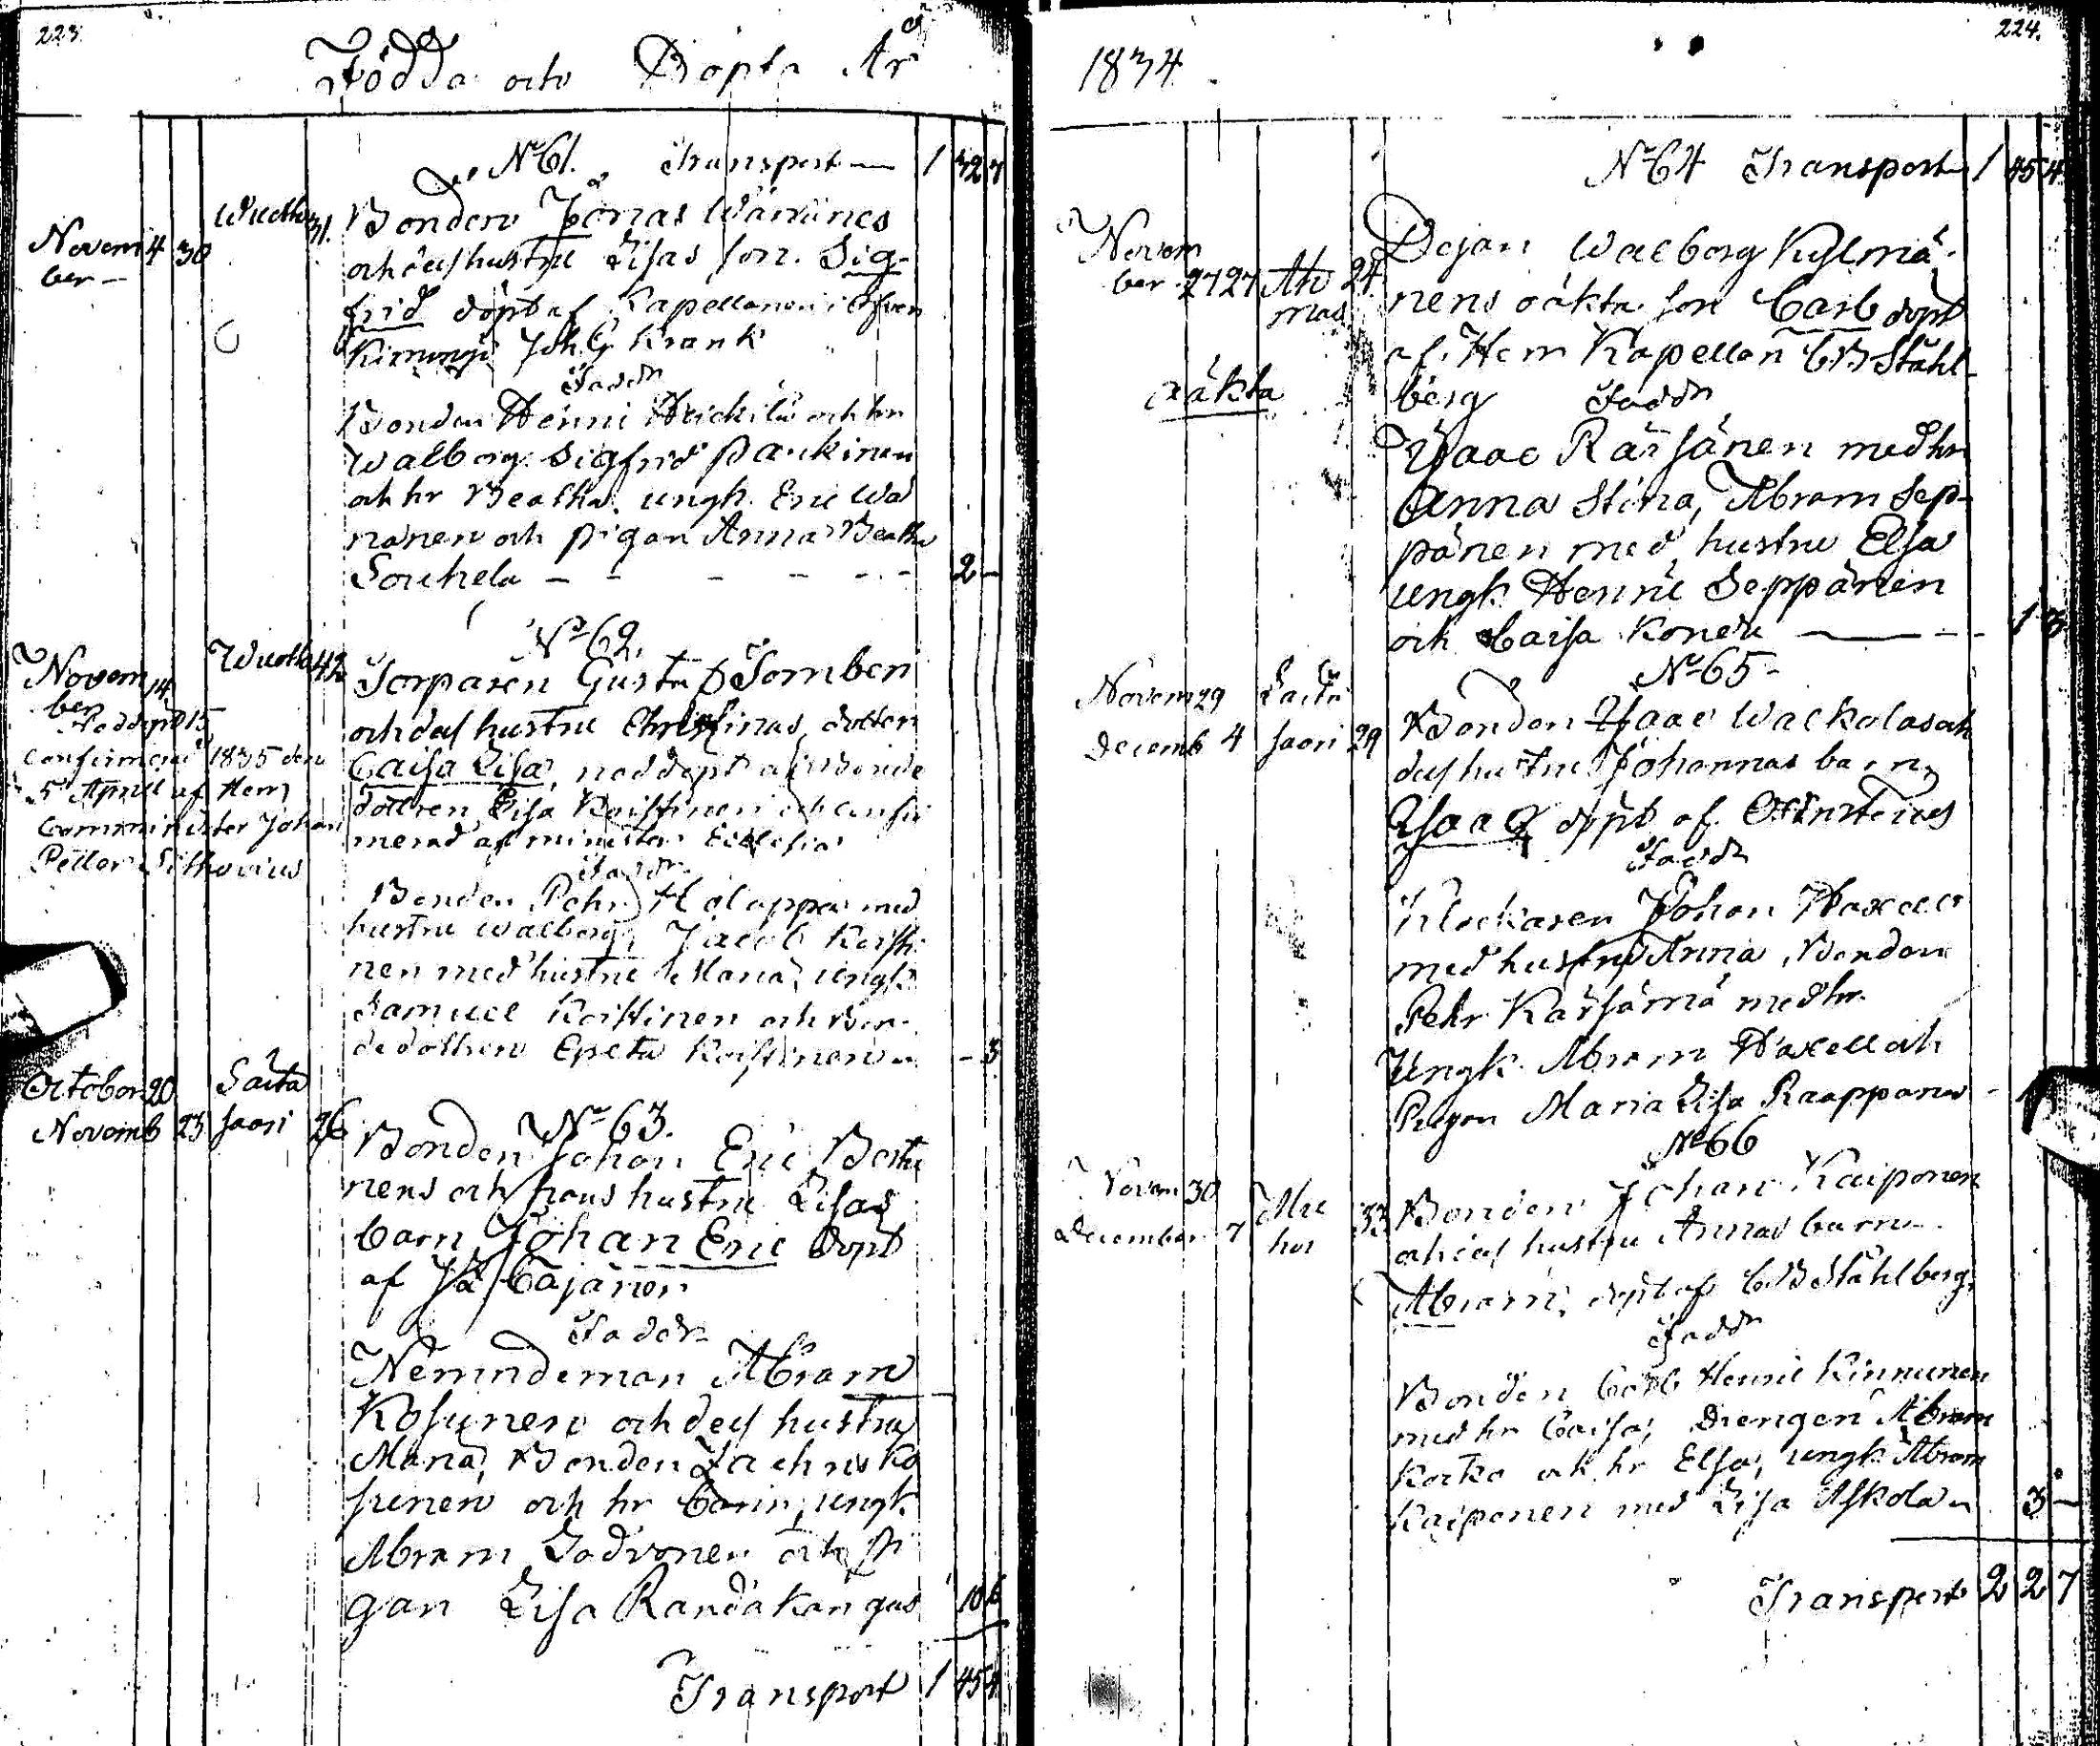 223.
Födda och Döpta År
No 61. Transport — 1 32
Novem 4 30
ber —
31.
Bonden Jonas
och das hustru Lisas son. Sig-
frid döpt af Kapellanen i
Joh. G Krank
Fadd
Bonden Henric Heickilä och hr
Walborg. Sigfrid Paukinen
och hr Beatha. ungk. Eric Wä
nänen och pigan Anna Beatha
Souhela — 2 —
No 62.
Novem 14
ber
Nöddöpt 15
Confirmerad 1835 den
5 April af Herr
Comminister Johan
Petter
Torparen Gustaf Tomberi
och das hustru Christinas dotter
Caisa Lisa, nöddöpt af Bonde
dottren Lisa Koistinen och confir
merad af
Fadd
Bonden Pehr Holappa med
hustru Walborg, Jacob Koisti-
nen med hustru Maria, ungk
Samuel Koistinen och Bon-
dedottren Greta Koistinen — 3
October 20 Säitä
Novemb 23 saari 26
No 63.
Bonden Johan Eric
nens och hans hustru Lisas
barn Johan Eric döpt
af Cajanen
Fadd
Nämndeman Abram
Kosunen och das hustru
Maria, Bonden Zachris Ko
sunen och hr Carin, ungk.
Abram och pi
gan Lisa Randakangas 10 6
Transport 1 45 4
224.
1834.
No 64 Transport 1 45 4
Novem
ber 27 27 Ah 24
mas
oäkta
Dejan Walborg Kylmä-
nens oäkta son Carl döpt
af Herr Kapellan CB Ståhl-
berg Fadd
Isaac Räisänen med hr
Anna Stina, Abram Sep-
pänen med hustru Elsa
ungk Henric Seppänen
och Caisa Kondu — 1 3
No 65
Novem 29 Säitä
Decemb 4 saari 29
Bonden Isaac Wackolas och
das hustru Johannas barn
Isaac döpt af
Fadd
Klockaren Johan Haxell
med hustru Anna, Bonden
Pehr Kärsämä med hr.
Ungk. Abram Haxell och
Pigan Maria Lisa Raappana —
No 66
Novem 30
December 7
33
Bonden Johan Kaiponen
och das hustru Annas barn
Abram, döpt af CB Ståhlberg
Fadd
Bonden Carl Henric Kinnunen
med hr Caisa, Drengen Abram
och hr Elsa, ungk Abram
Kaiponen med Lisa Askola 3 —
Transport 2 2 7